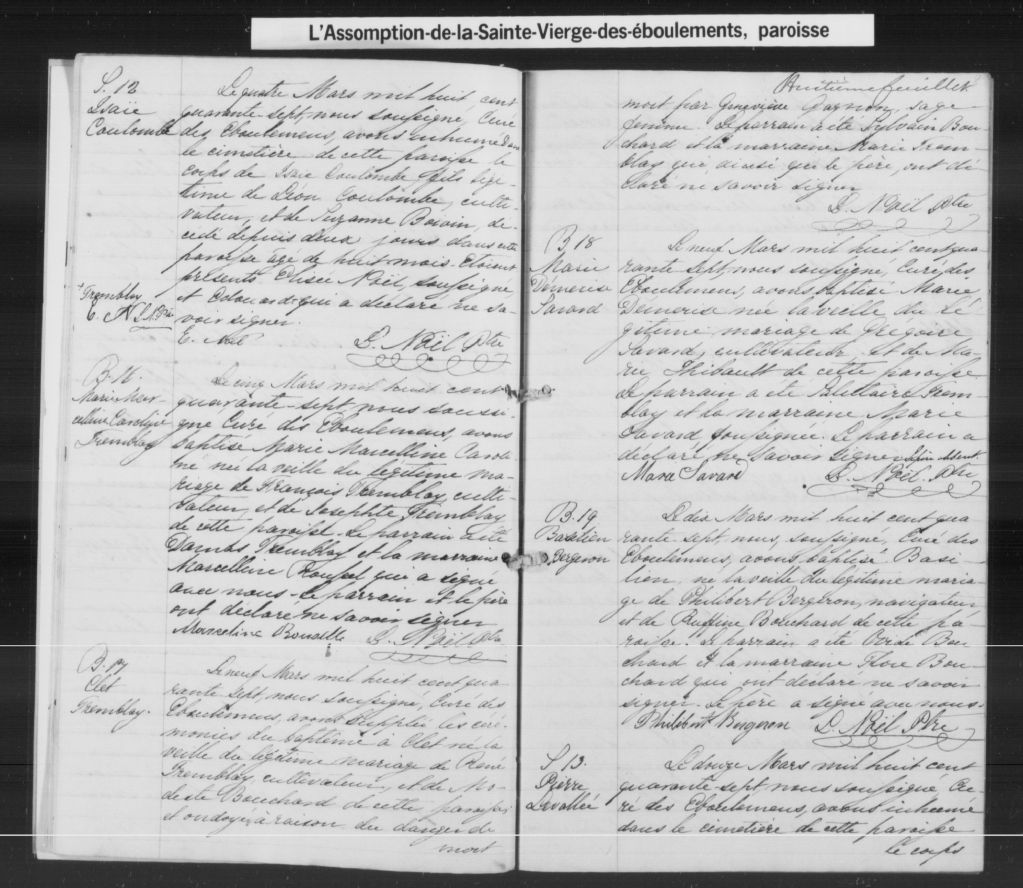 L'Assomption-de-la-Sainte-Vierge-des-éboulements, paroisse
S. 12
Isaïe
Coulombe
Le quatre Mars mil huit cent
quarante-sept, nous soussigné, Curé
des Eboulemens, avons inhumé dans
le cimetière de cette paroisse le
corps de Isaïe Coulombe fils légi-
time de Léon Coulombe, culti-
vateur, et de Suzanne Boivin, dé-
cédé depuis deux jours dans cette
paroisse age de huit mois. Etoient
présents Elisée Noël, soussigné,
+ Tremblay
E. N. L. N. Ptre
et Edouard+ qui a déclaré ne sa-
voir signer.
E. Noël L. Noël Ptre
B. 16.
Marie Mar-
celline Caroline
Tremblay
Le cinq Mars mil huit cent
quarante-sept nous soussi-
gné Curé des Eboulemens, avons
baptisé Marie Marcelline Caroli
ne née la veille du légitime ma-
riage de François Tremblay, culti
vateur, et de Josephte Tremblay
de cette paroisse. Le parrain a été
Tremblay et la marraine
Marcelline Roussel qui a signé
avec nous. Le parrain et le père
ont déclaré ne savoir signer
Marceline Rouselle L. Noël Ptre
B. 17
Clet
Tremblay.
Le neuf Mars mil huit cent qua
rante sept, nous soussigné, Curé des
Eboulemens, avons suppléé les céré-
monies du baptême a Clet né la
veille du légitime mariage de René
Tremblay, cultivateur, et de Mo-
deste Bouchard de cette paroisse,
et ondoyé a raison du danger de
mort
Huitième feuillet
mort par Geneviève Gagnon, sage
femme. Le parrain a été Sylvain Bou-
chard et la marraine Marie Trem-
blay qui, ainsi que le père, ont dé-
claré ne savoir signer
L. Noël Ptre
B. 18
Marie
Démerise
Savard
Le neuf Mars mil huit cent qua-
rante sept, nous soussigné, Curé des
Eboulemens, avons baptisé Marie
Démerise née la veille du lé-
gitime mariage de Grégoire
Savard, cultivateur et de Ma-
rie Thibault de cette paroisse
Le parrain a été Tem-
blay et la marraine Marie
Savard soussignée. Le parrain a
déclaré ne savoir signer
Mara Savard L. Noël Ptre
B. 19
Basilien
Bergeron
Le dix Mars mil huit cent qua
rante sept, nous, soussigné, Curé des
Eboulemens, avons baptisé Basi-
lien, né la veille du légitime maria-
ge de Philibert Bergeron, navigateur
et de Ruffine Bouchard de cette pa-
roisse. Le parrain a été Bou
chard et la marraine Flore Bou-
chard qui ont déclaré ne savoir
signer. Le père a signé avec nous.
Philibert Bergeron L. Noël Ptre
S. 13.
Pierre
Lavallée
Le douze Mars mil huit cent
quarante sept nous soussigné Cu-
ré des Eboulemens, avons inhumé
dans le cimetière de cette paroisse
le corps